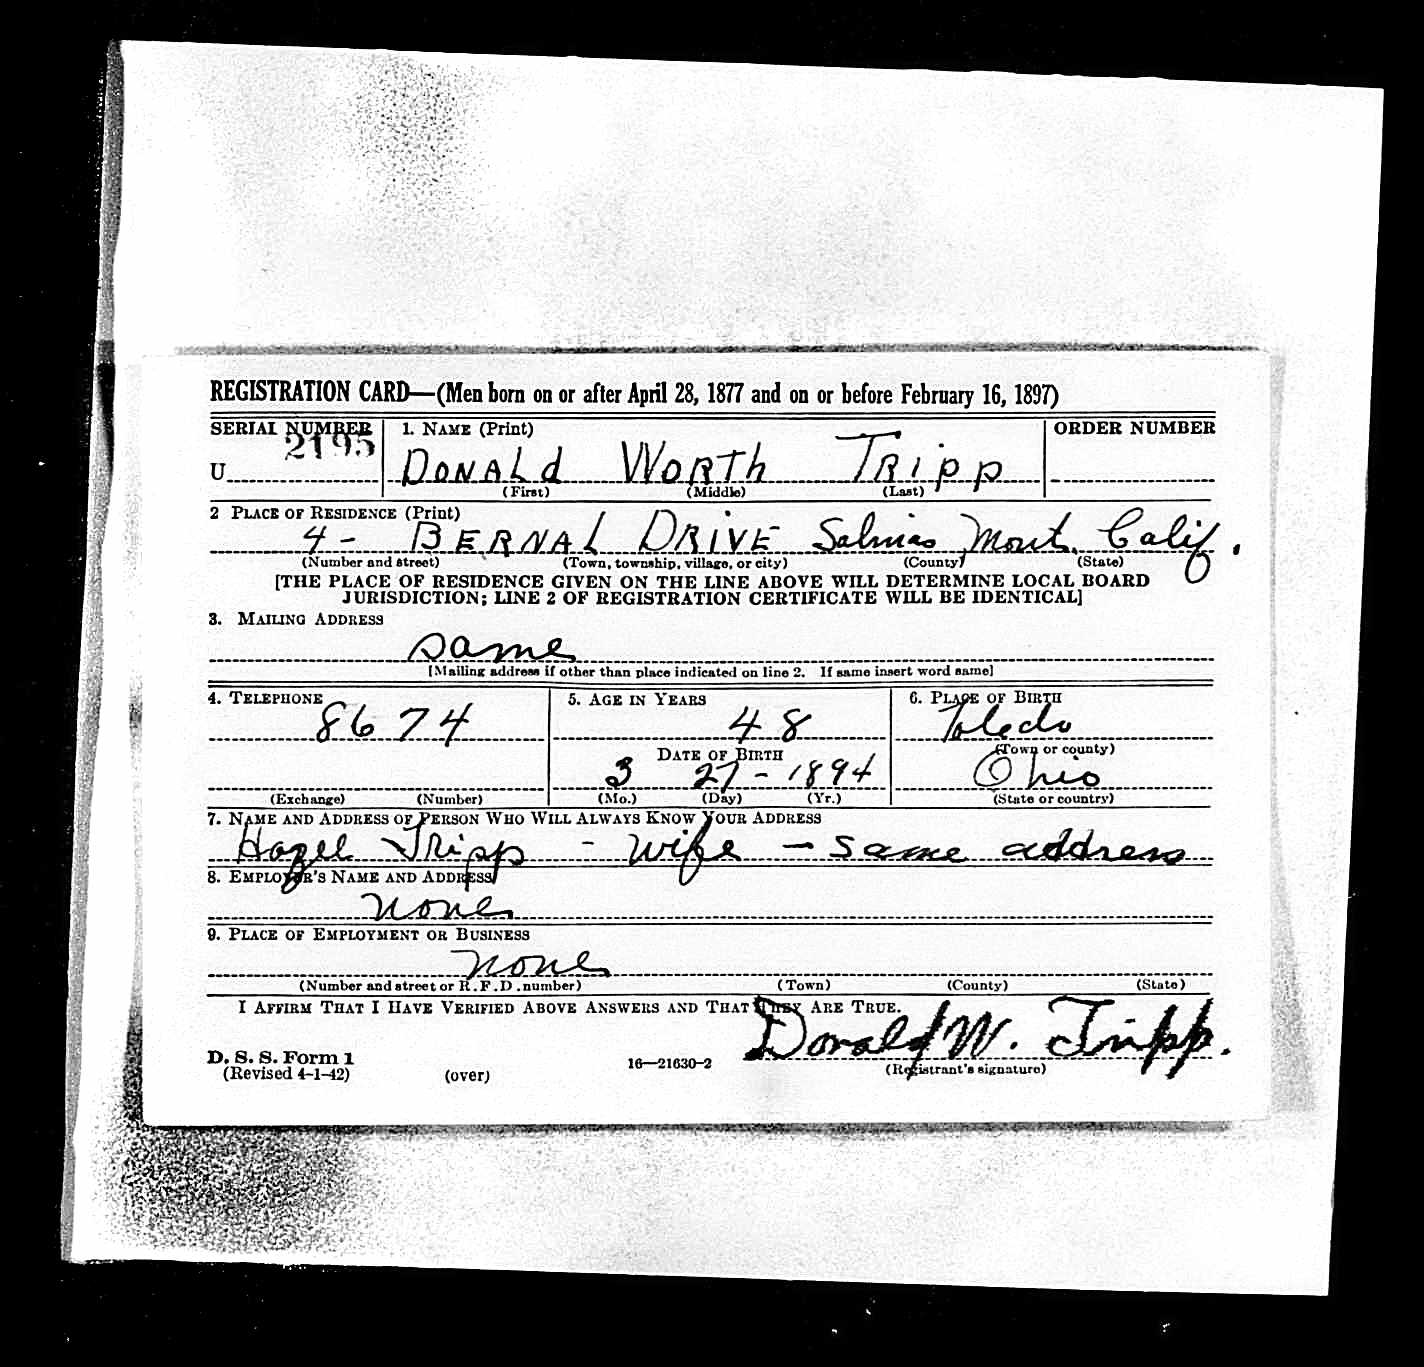 REGISTRATION CARD—(Men born on or after April 28, 1877 and on or before February 16, 1897)
SERIAL NUMBER 1. NAME (Print) ORDER NUMBER
2195
U DONALD WORTH TRIPP
(First) (Middle) (Last)
2 PLACE OF RESIDENCE (Print)
4 - BERNAL DRIVE Salinas Mont. Calif.
(Number and street) (Town, township, village, or city) (County) (State)
[THE PLACE OF RESIDENCE GIVEN ON THE LINE ABOVE WILL DETERMINE LOCAL BOARD
JURISDICTION; LINE 2 OF REGISTRATION CERTIFICATE WILL BE IDENTICAL]
3. MAILING ADDRESS
same
[Mailing address if other than place indicated on line 2. If same insert word same]
4. TELEPHONE 5. AGE IN YEARS 6. PLACE OF BIRTH
8674 48 Toledo
DATE OF BIRTH (Town or county)
3 27 - 1894 Ohio
(Exchange) (Number) (Mo.) (Day) (Yr.) (State or country)
7. NAME AND ADDRESS OF PERSON WHO WILL ALWAYS KNOW YOUR ADDRESS
Hazel Tripp - wife - same address
8. EMPLOYER'S NAME AND ADDRESS
none
9. PLACE OF EMPLOYMENT OR BUSINESS
none
(Number and street or R. F. D. number) (Town) (County) (State)
I AFFIRM THAT I HAVE VERIFIED ABOVE ANSWERS AND THAT THEY ARE TRUE.
Donald W. Tripp.
D. S. S. Form 1 16—21630-2 (Registrant's signature)
(Revised 4-1-42) (over)